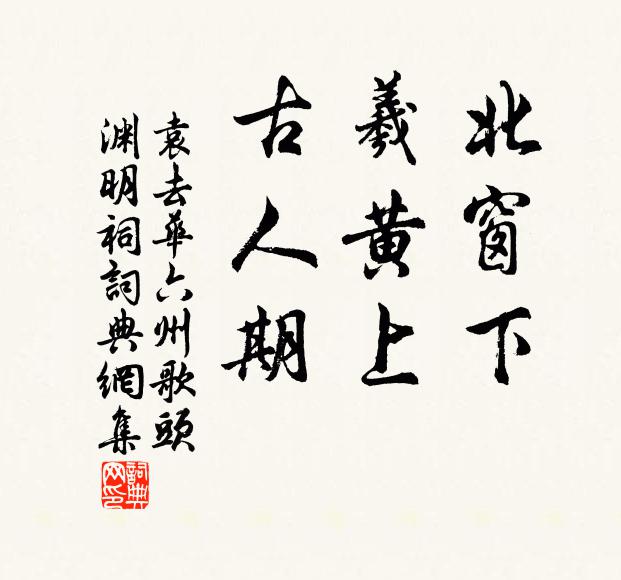 北窗下
羲黄上
古人期
袁去华六州歌頭
渊明祠詞典網集
詞典网印